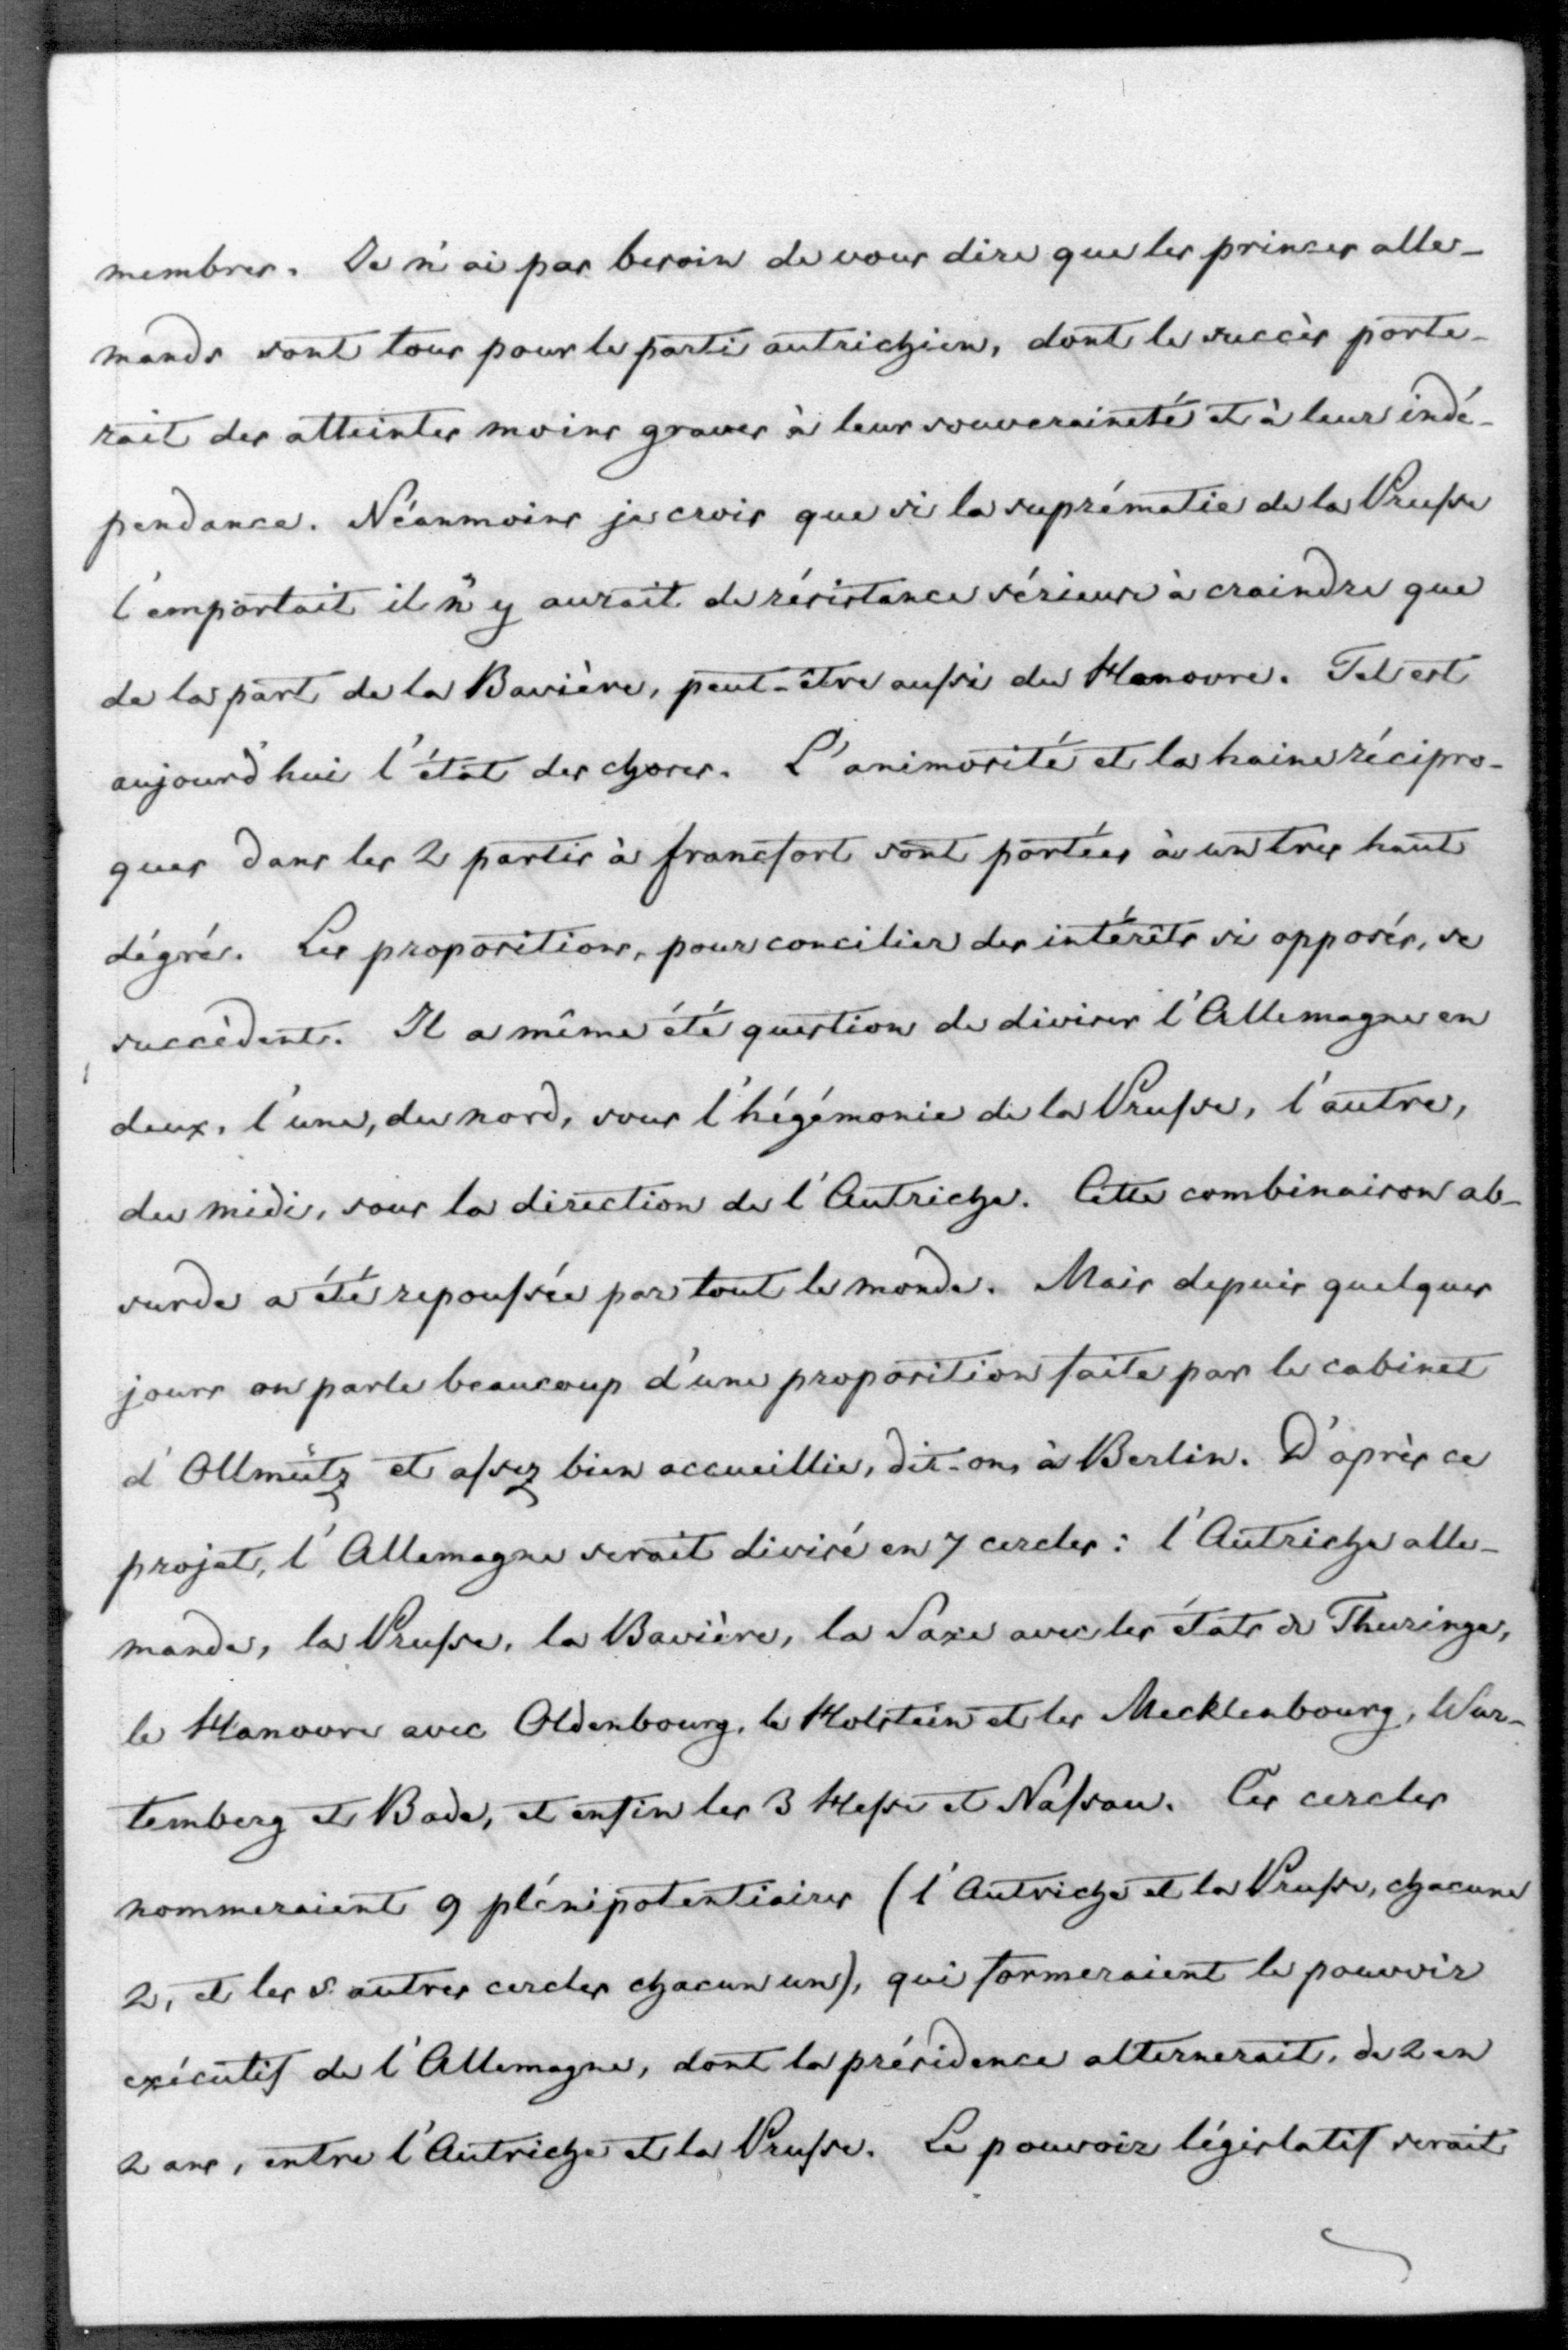 membres. Je n'ai pas besoin de vous dire que les princes alle-
mands sont tous pour le parti autrichien, dont le succès porte-
rait des atteintes moins graves à leur souveraineté et à leur indé-
pendance. Néanmoins je crois que si la suprématie de la Prusse
l'emportait il n'y aurait de résistance sérieuse à craindre que
de la part de la Bavière, peut-être aussi du Hanovre. Tel est
aujourd'hui l'état des choses. L'animosité et la haine récipro-
ques dans les 2 partis à francfort sont portées à un très haut
dégré. Les propositions, pour concilier des intérêts si opposés, se
succèdent. Il a même été question de diviser l'Allemagne en
deux, l'une, du nord, sous l'hégémonie de la Prusse, l'autre,
du midi, sous la direction de l'Autriche. Cette combinaison ab-
surde a été repoussée par tout le monde. Mais depuis quelques
jours on parle beaucoup d'une proposition faite par le cabinet
d'Ollmütz et assez bien accueillie, dit-on, à Berlin. D'après ce
projet, l'Allemagne serait divisé en 7 cercles: l'Autriche alle-
mande, la Prusse, la Bavière, la Saxe avec les états de Thuringe,
le Hanovre avec Oldenbourg, le Holstein et les Mecklenbourg, Wur-
temberg et Bade, et enfin les 3 Hesse et Nassau. Ces cercles
nommeraient 9 plénipotentiaires (l'Autriche et la Prusse, chacune
2, et les 5 autres cercles chacun un), qui formeraient le pouvoir
exécutif de l'Allemagne, dont la présidence alternerait, de 2 en
2 ans, entre l'Autriche et la Prusse. Le pouvoir législatif serait